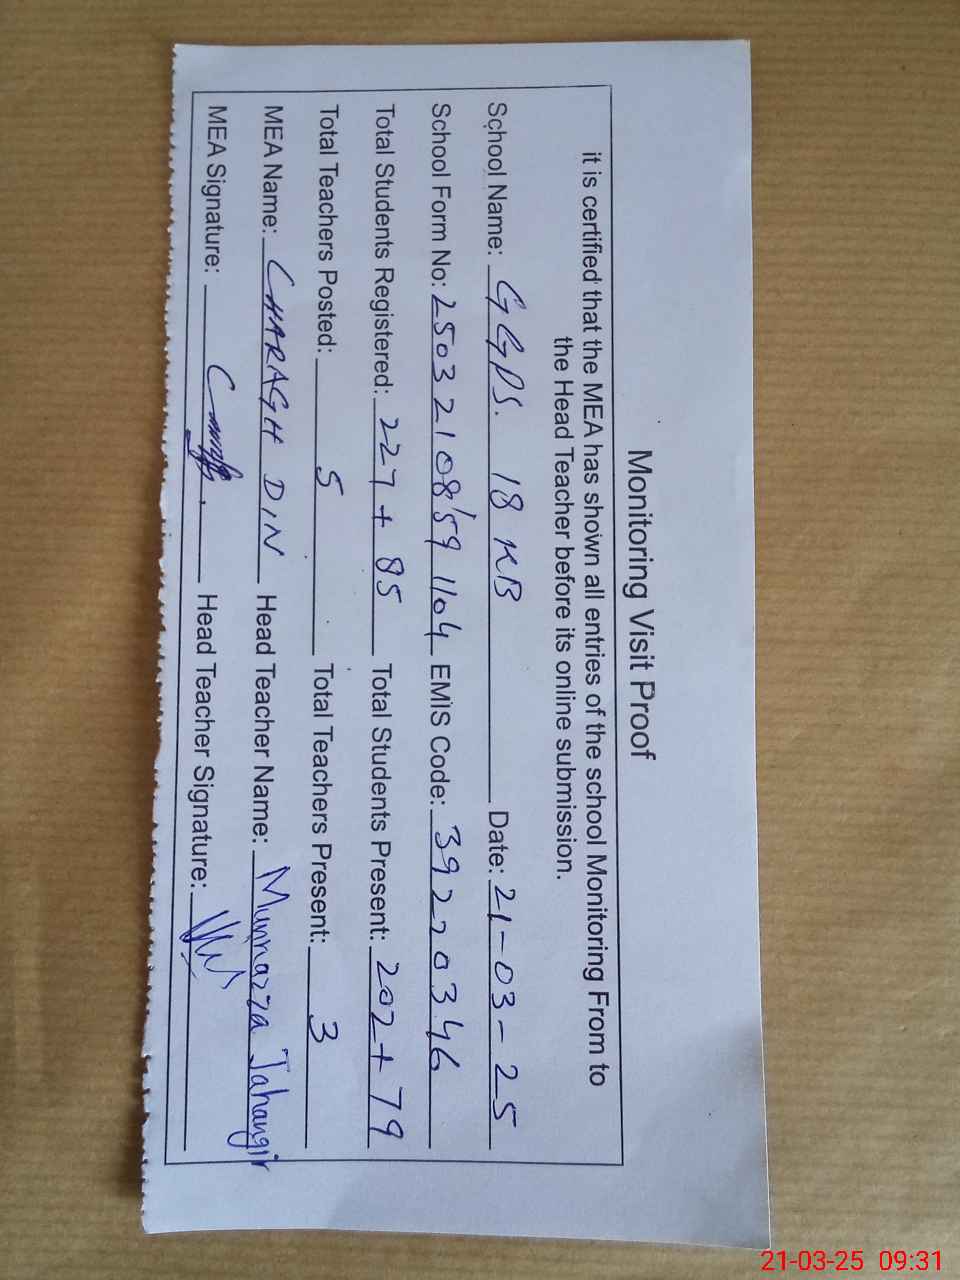 Monitoring Visit Proof
it is certified that the MEA has shown all entries of the school Monitoring From to
the Head Teacher before its online submission.
School Name: GGPS. 18 KB Date: 21-03-25
School Form No: 2503210859 1104 EMIS Code: 39220346
Total Students Registered: 227 + 85 Total Students Present: 202 + 79
Total Teachers Posted: 5 Total Teachers Present: 3
MEA Name: CHARAGH DIN Head Teacher Name: Munnazza Jahangir
MEA Signature: Head Teacher Signature:
21-03-25 09:31